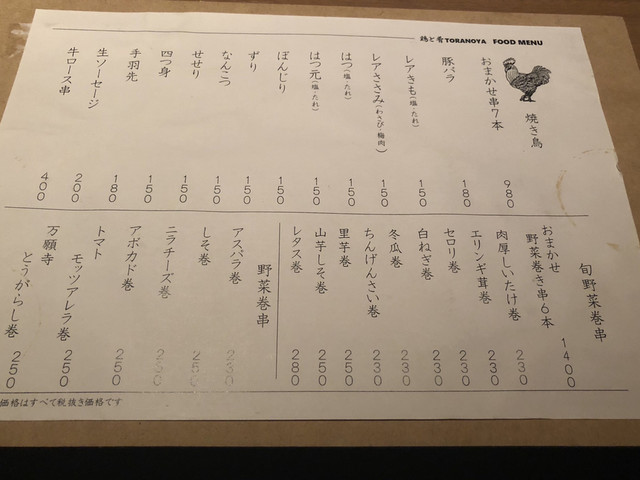 鶏と肴TORANOYA FOOD MENU
焼き鳥
おまかせ串7本 980
豚バラ 180
レアきも(塩・たれ) 150
レアささみ(わさび・梅肉) 150
はつ(塩・たれ) 150
はつ元(塩・たれ) 150
ぼんじり 150
ずり 150
なんこつ 150
せせり 150
四つ身 150
手羽先 180
生ソーセージ 200
牛ロース串 400
旬野菜巻串
おまかせ
野菜巻き串6本 1400
肉厚しいたけ巻 230
エリンギ茸巻 230
セロリ巻 230
白ねぎ巻 230
冬瓜巻 230
ちんげんさい巻 230
里芋巻 250
山芋しそ巻 250
レタス巻 280
野菜巻串
アスパラ巻 230
しそ巻 250
ニラチーズ巻 230
アボカド巻 250
トマト
モッツアレラ巻 250
万願寺
とうがらし巻 250
価格はすべて税抜き価格です